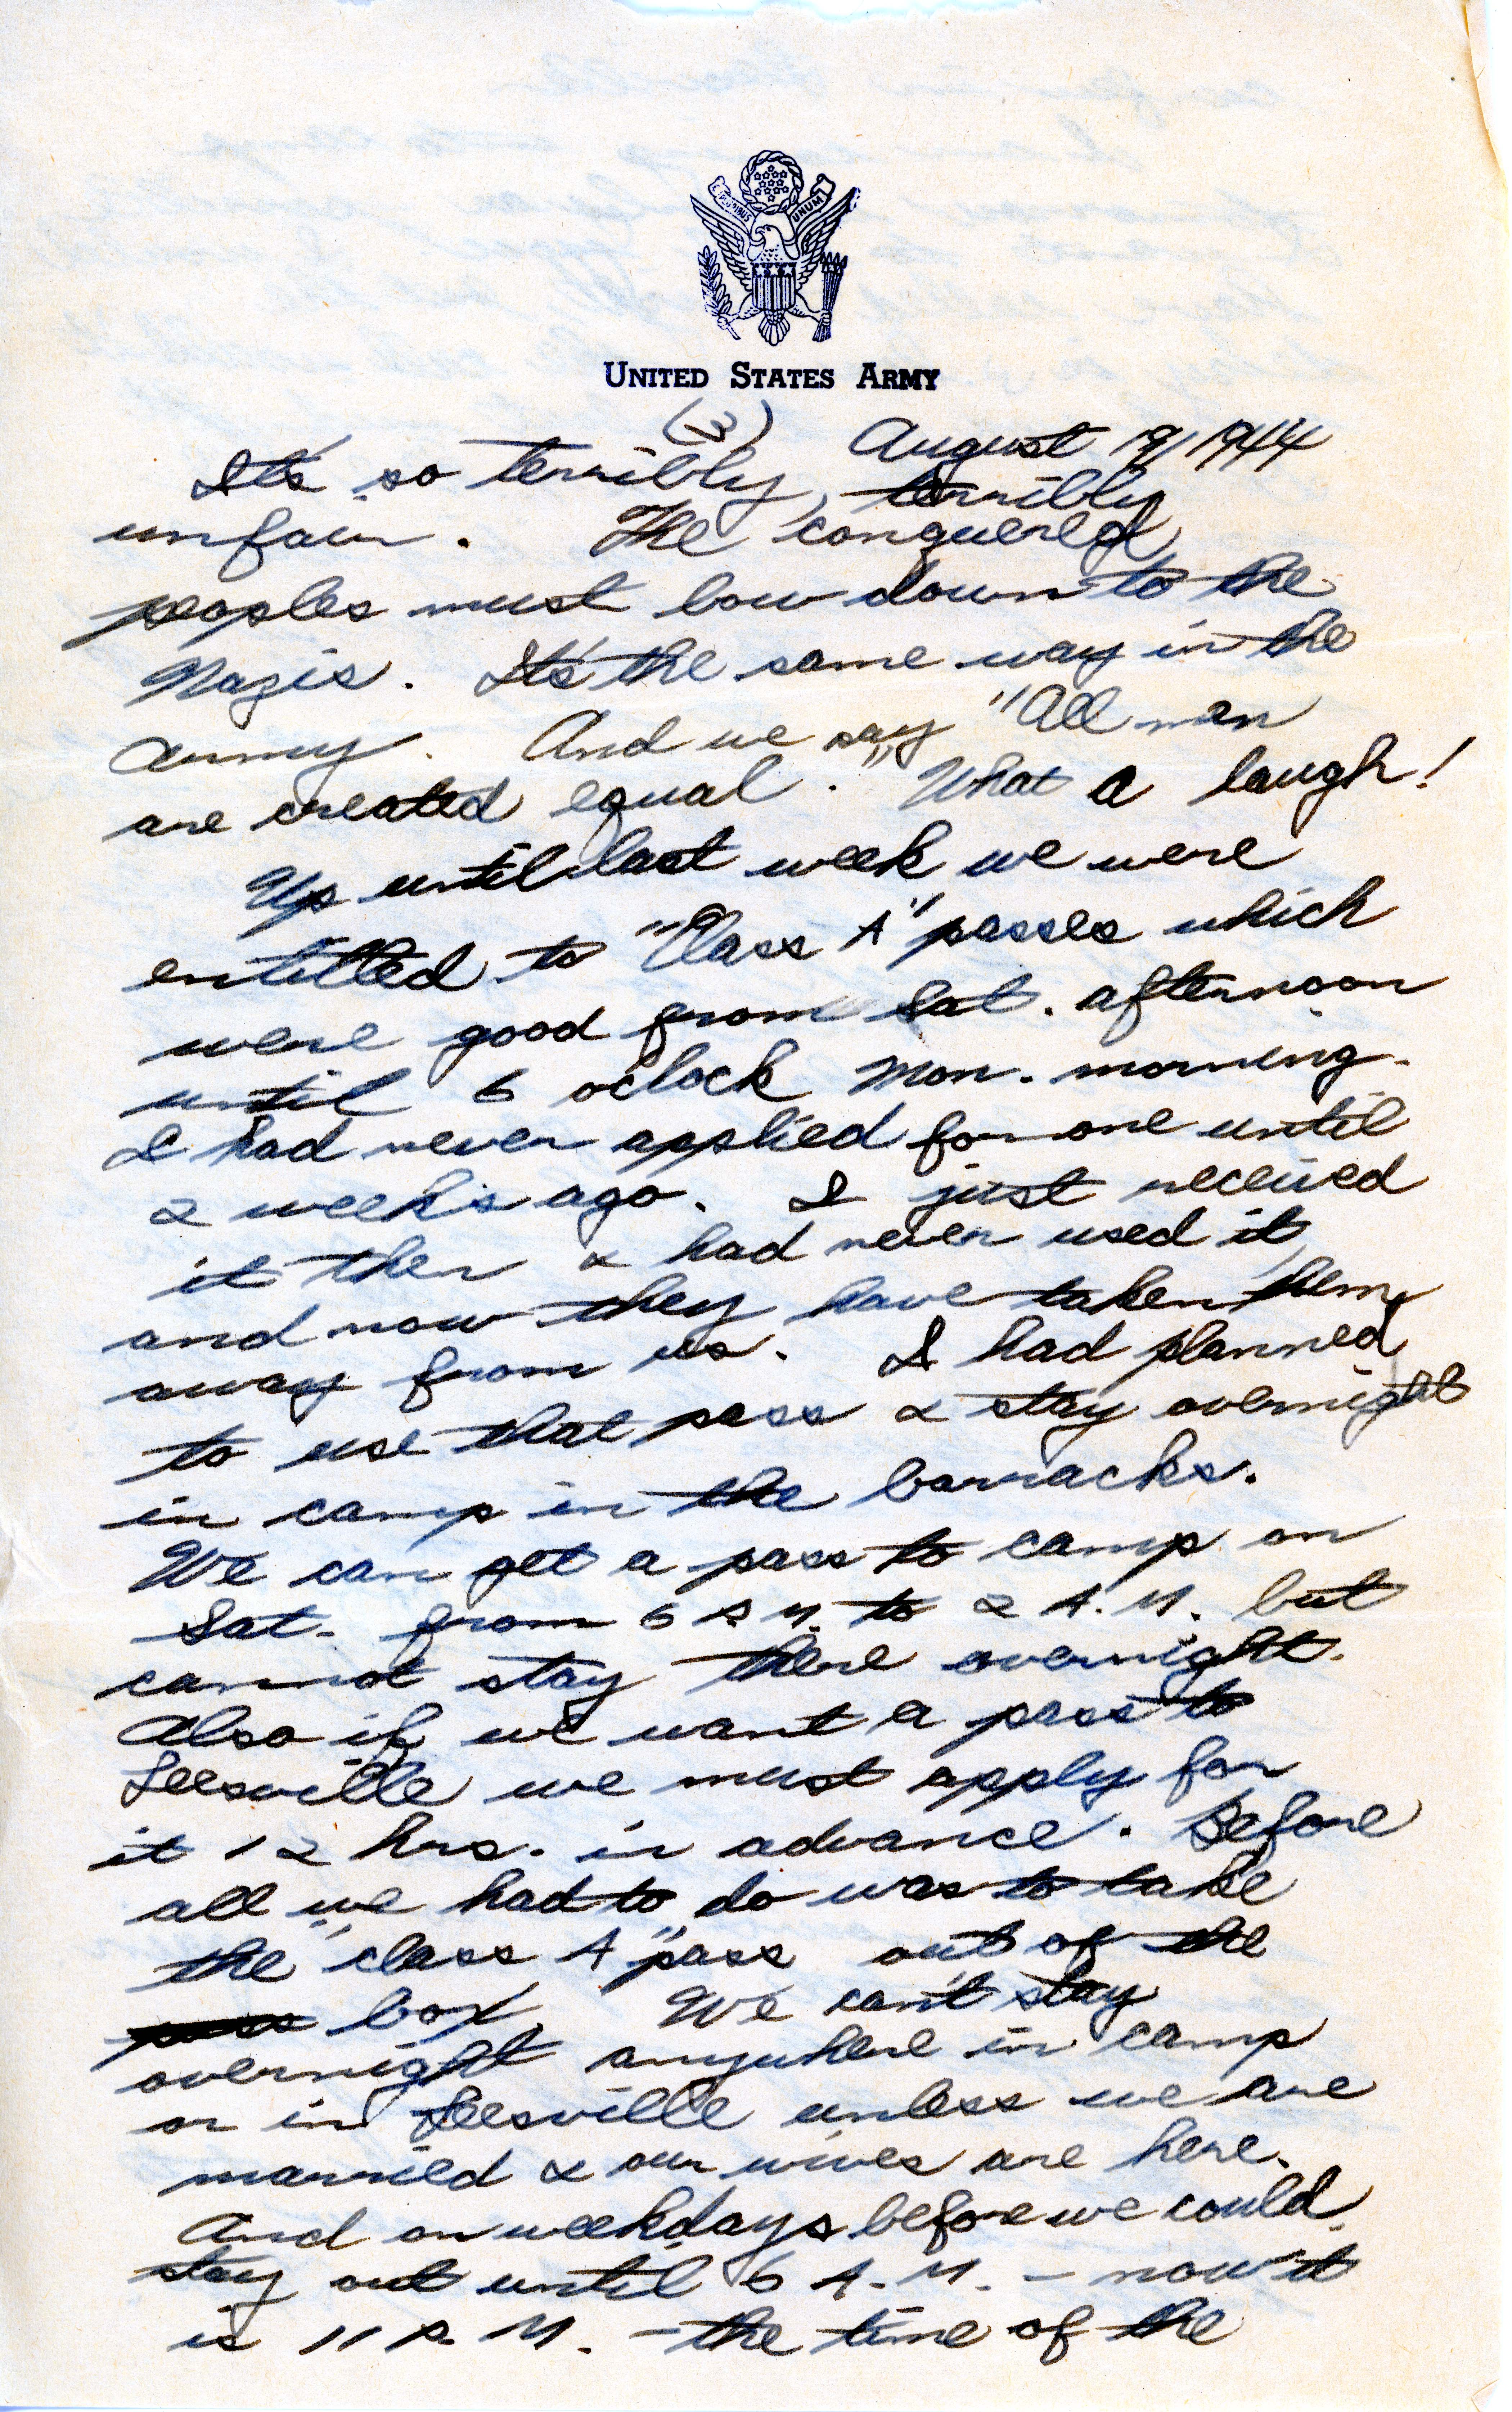 E PLURIBUS UNUM
UNITED STATES ARMY
(3) August 19, 1944
It's so terribly, terribly
unfair. The conquered
peoples must bow down to the
Nazis. It's the same way in the
army. And we say "All men
are created equal." What a laugh!
Up until last week we were
entitled to "Class A" passes which
were good from Sat. afternoon
until 6 oclock Mon. morning.
I had never applied for one until
2 weeks ago. I just received
it then & had never used it,
and now they have taken them
away from us. I had planned
to use that pass & stay overnight
in camp in the barracks.
We can get a pass to camp on
Sat. from 6 P.M. to 2 A.M. but
cannot stay there overnight.
Also if we want a pass to
Leesville we must apply for
it 12 hrs. in advance. Before
all we had to do was to take
the "class A" pass out of the
pass box. We can't stay
overnight anywhere in camp
or in Leesville unless we are
married & our wives are here.
And on weekdays before we could
stay out until 6 A.M. - now it
is 11 P.M. - the time of the